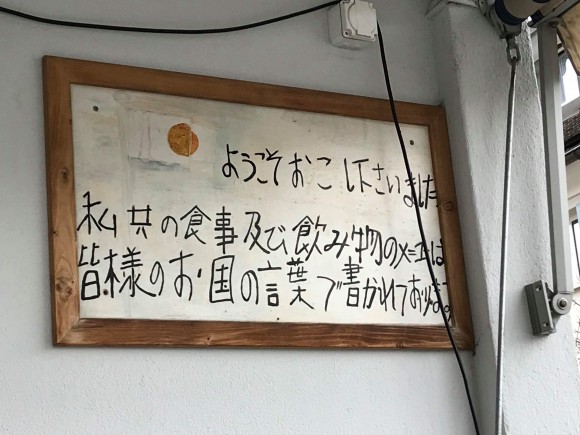 ようこそおこし下さいました。
私共の食事及び飲み物のメニューは
皆様のお国の言葉で書かれております。